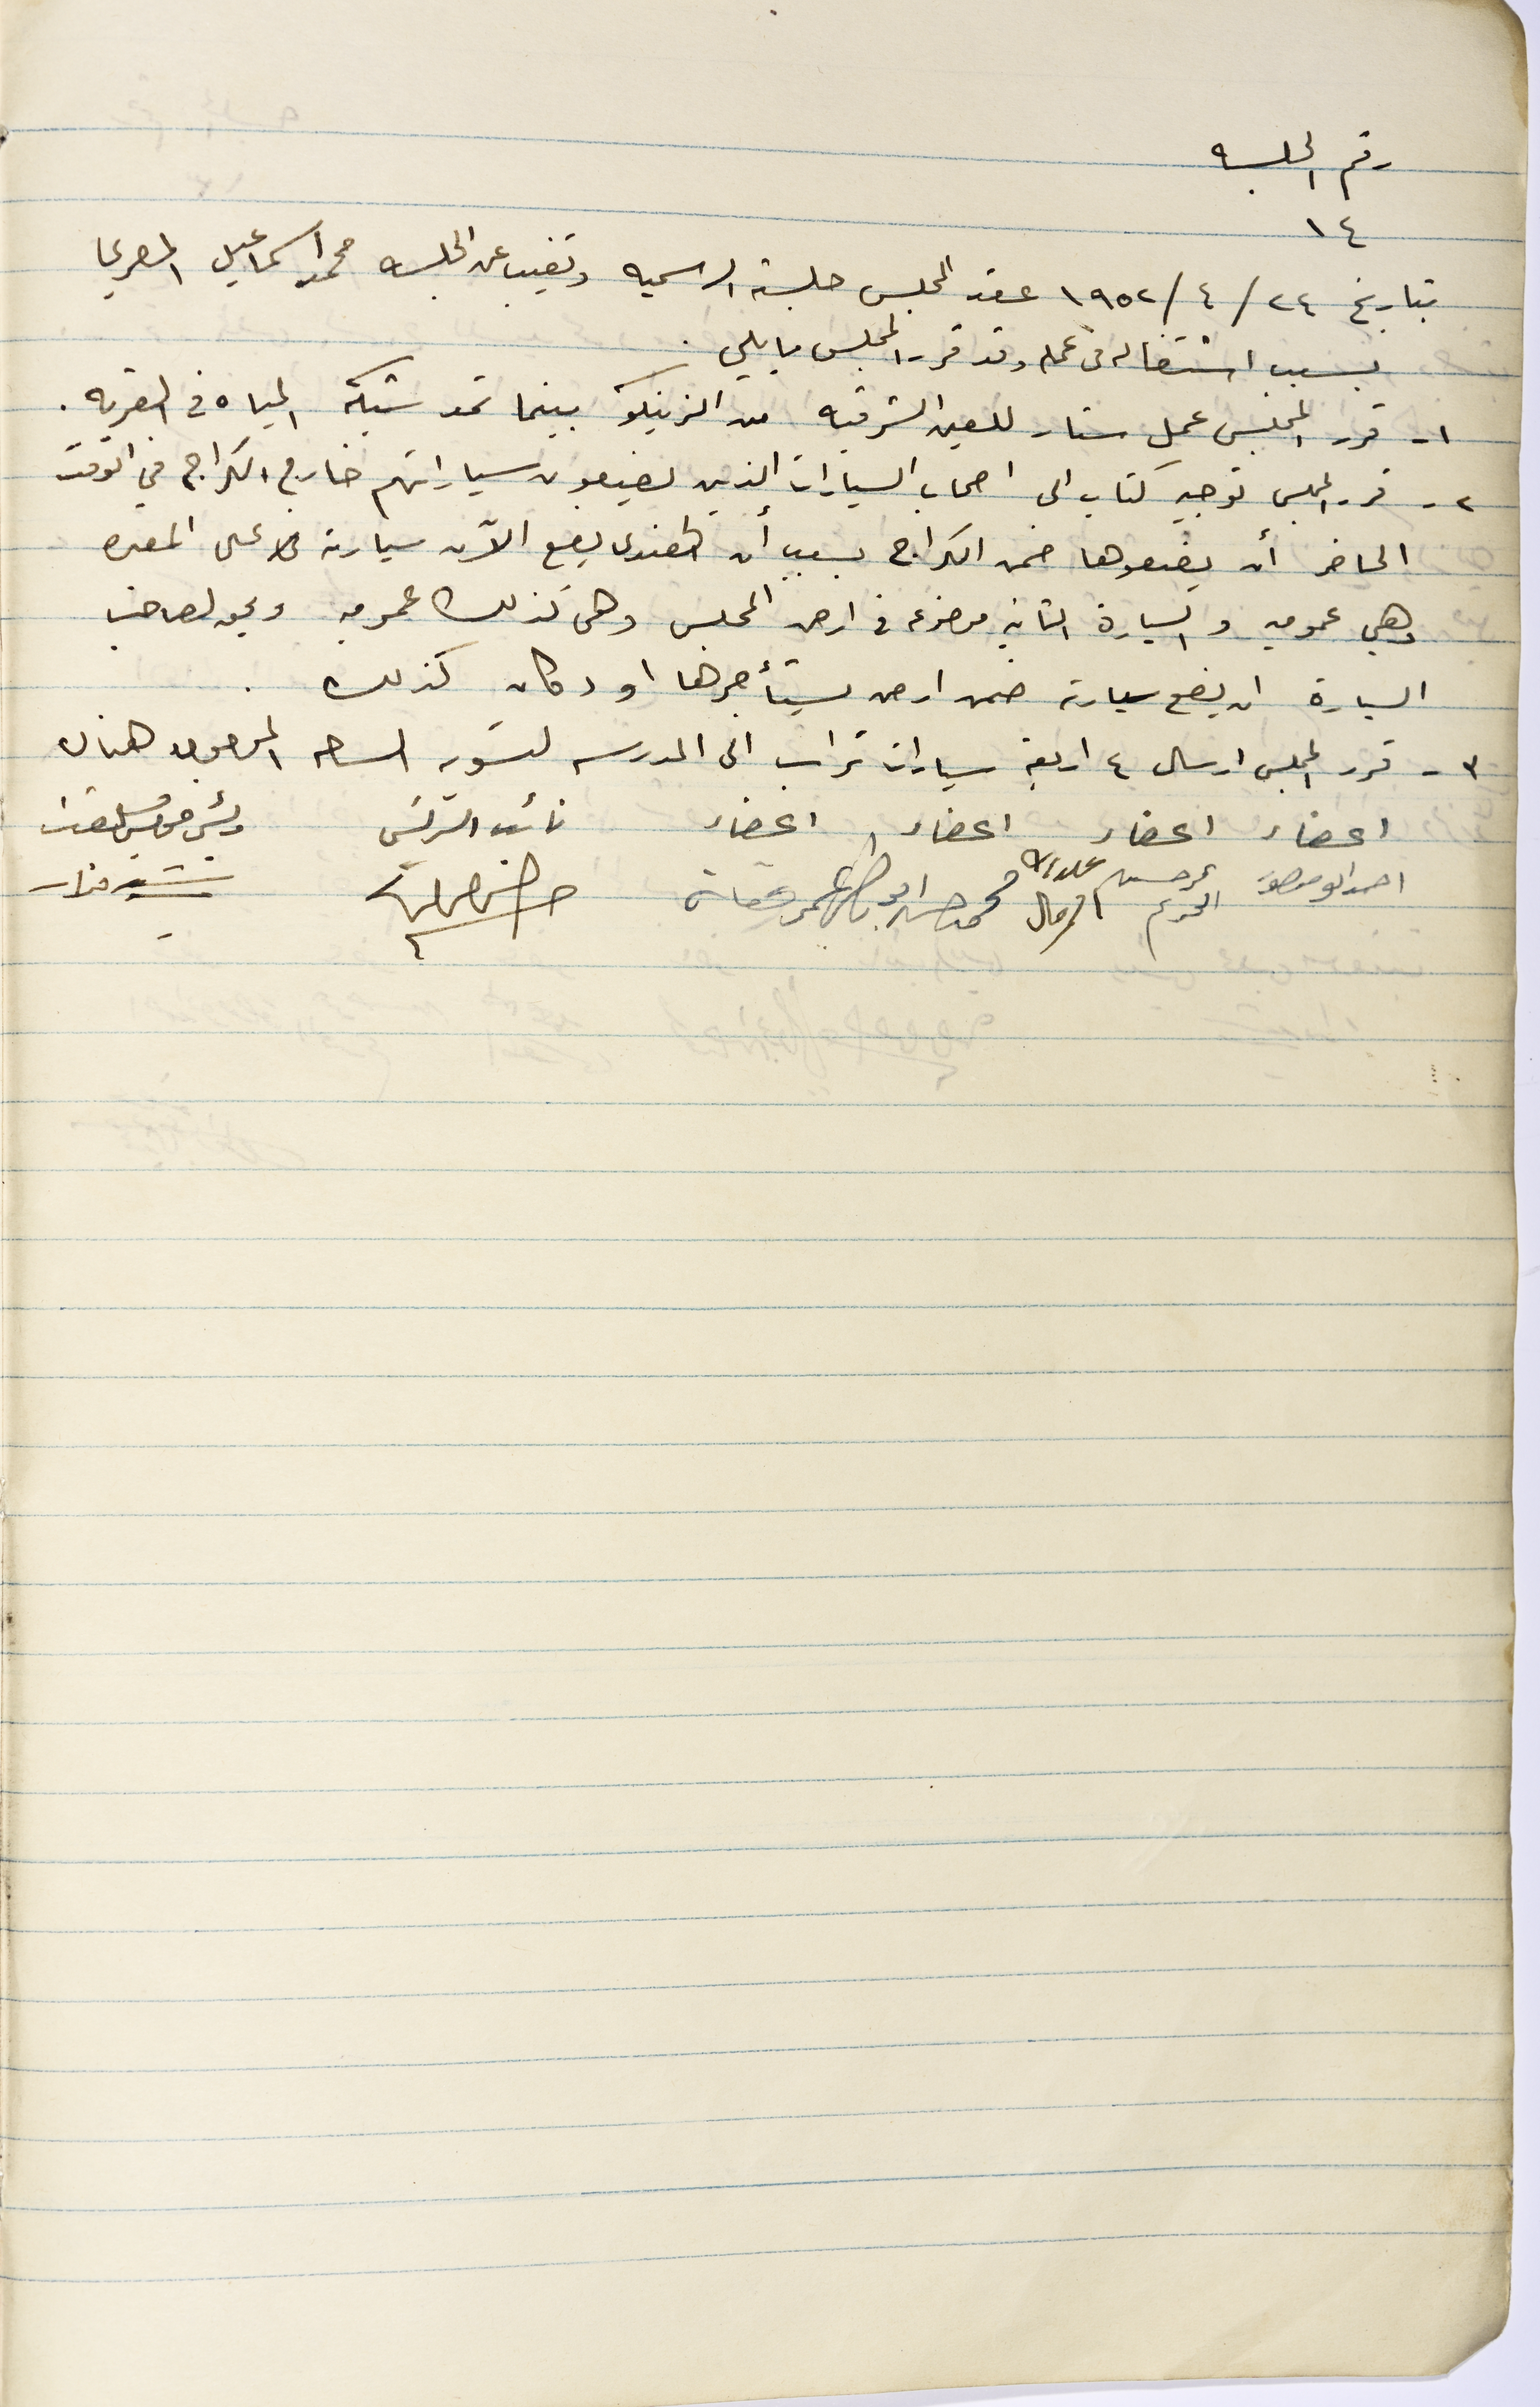 رقم الجلسه
١٤
بتاريخ ٢٤/ ٤/ ١٩٥٢ عقد المجلس جلسته الرسميه وتغيب عن الجلسه محمد اسماعيل المصري
بسبب اشتغاله في عمله وقد قرر المجلس ما يلي .
١- قرر المجلس عمل ستار للعين الشرقيه من الزينكو بينما تمد شبكة المياه في القريه .
٢- قرر المجلس توجيه كتاب الى اصحاب السيارات الذين يضيعون سياراتهم خارج الكراج في الوقت
الحاضر أن يضعوها ضمن الكراج بسبب أن يضع الآن سيارته على المقبره
وهي عموميه و السيارة الثانيه موضوعه في ارض المجلس وهي كذلك عموميه ويحق لصاحب
السيارة ان يضع سيارته ضمن ارض يستأجرها او دكان كذلك .
٣- قرر المجلس ارسال ٤ اربعة سيارات تراب الى المدرسه لتسوية الساحه الموجوده هناك
اعضاء اعضاء اعضاء اعضاء نائب الرئيس رئيس مجلس
احمد ابو منصور حسين الكريم محمد حسن